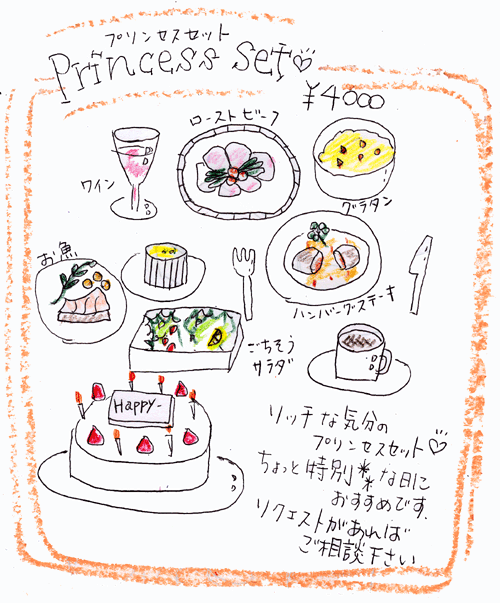 プリンセスセット
Princess set♡
¥4000
ローストビーフ
ワイン
グラタン
お魚
ハンバーグステーキ
ごちそう
サラダ
Happy-
リッチな気分の
プリンセスセット♡
ちょっと特別**な日に
おすすめです.
リクエストがあれば
ご相談下さい